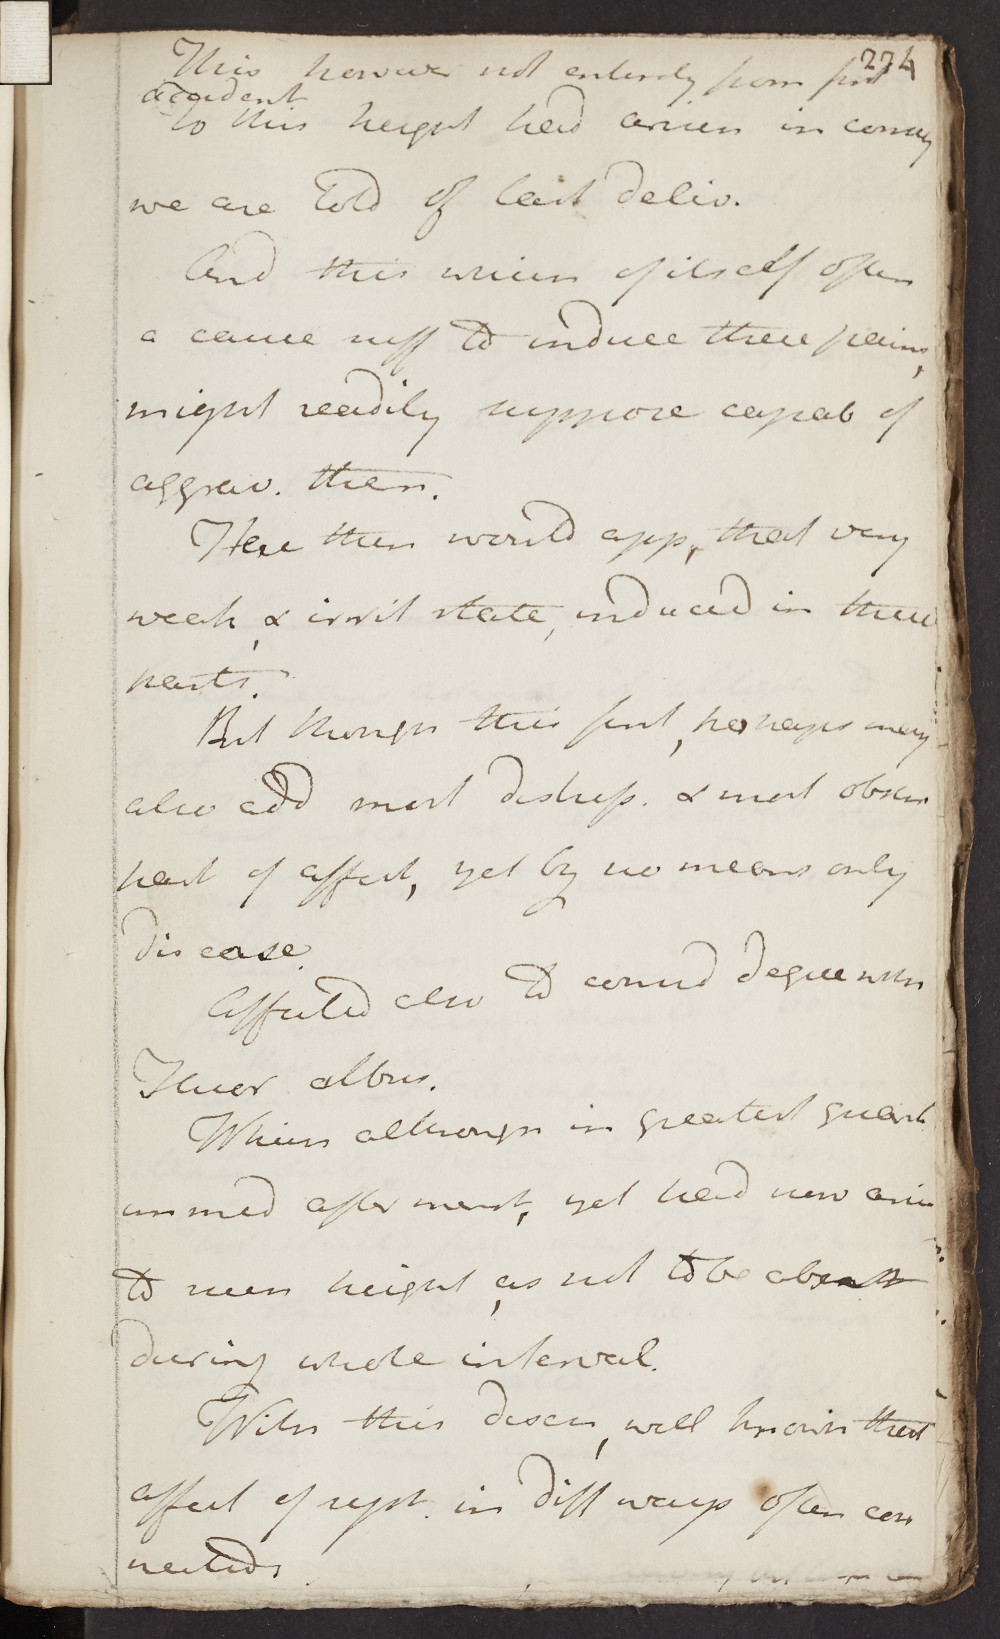 224
This however not entirely from first
accident
To this height had arisen in consq
we are told of last deliv.
And this which of itself often
a cause suff to induce these pains,
might readily suppose capab of
aggrav. them.
Here then would app, that very
weak, & irrit state, induced in these
parts.
But though this first, perhaps may
also add most distress. & most obser
part of affect, yet by no means only
disease.
Affected also to consid degree with
Fluor albus.
Which although in greatest quant
immed after menst, yet had now arisen
to such height, as not to be absent
during whole interval.
With this disease, well known that
affect of syst. in diff ways often con
nected.